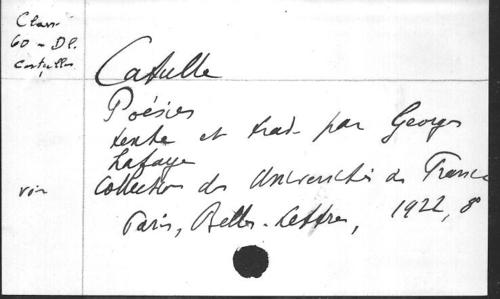 Class
60 - Dl.
Catulle
Poésies
texte et trad. par Georges
Lafaye
Collection des Universités de France
Paris, Belles-Lettres, 1922, 8°
voir